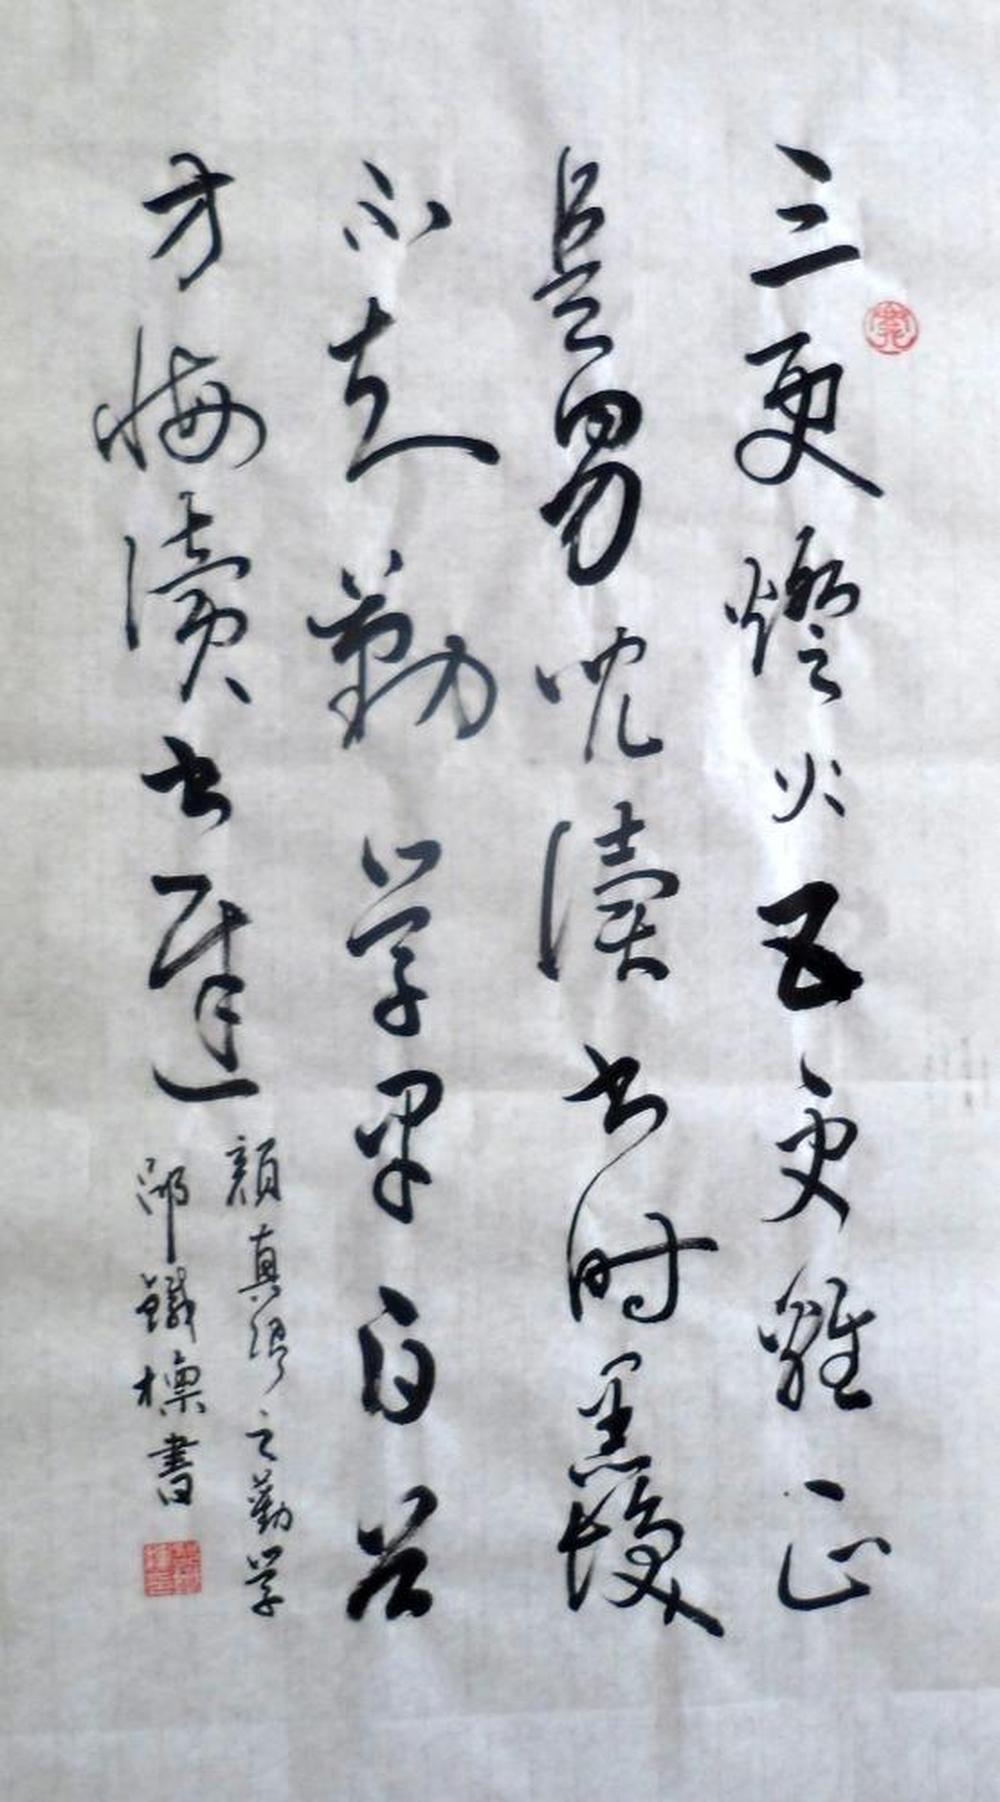 三更燈火五更雞正
是男兒讀書時黑髮
不知勤學早白首
方悔讀書遲
顏真卿之勤學
鐵標書